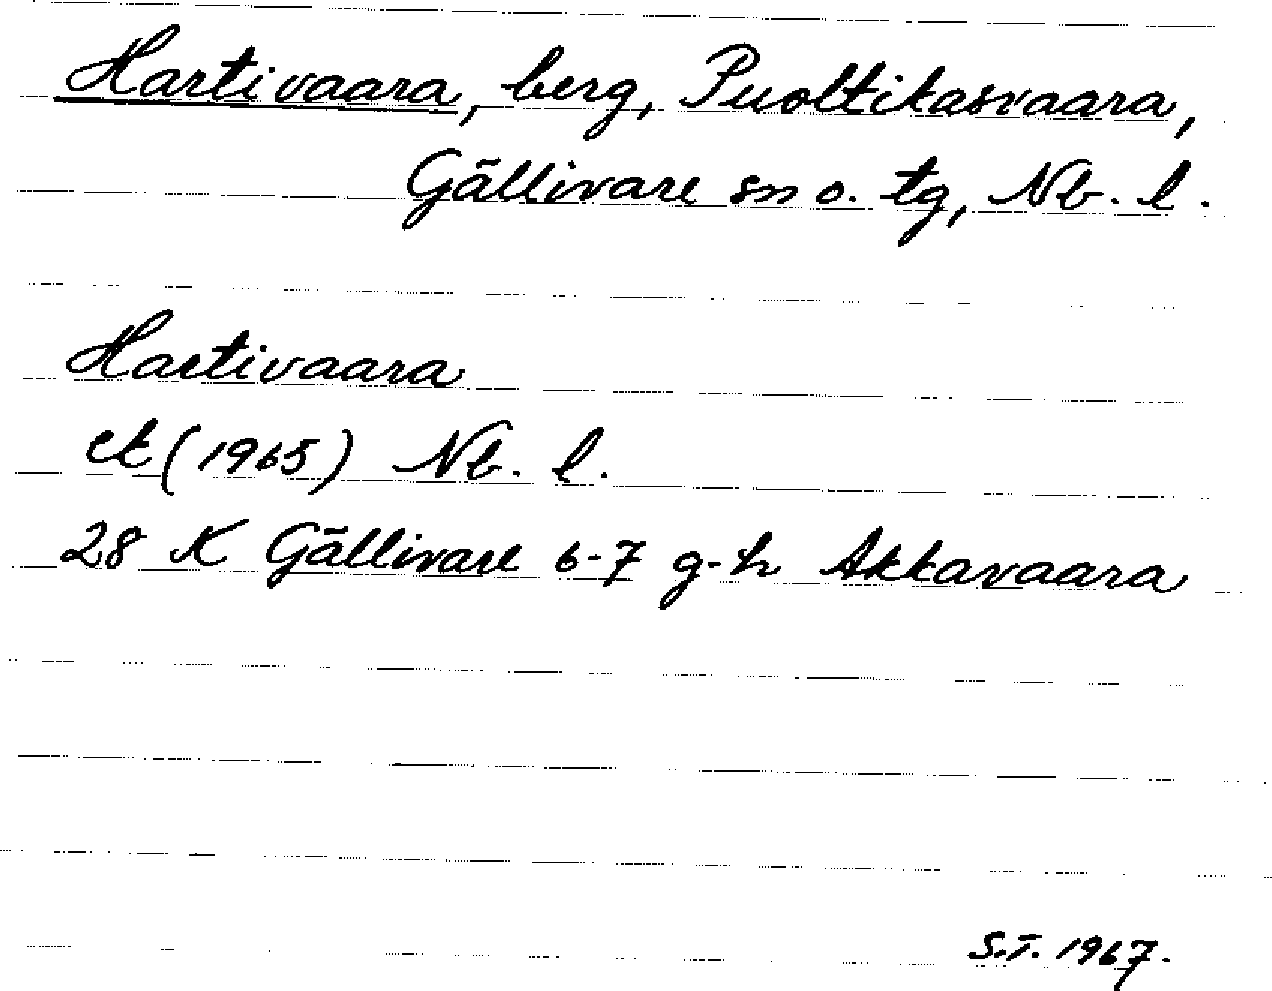 Hartivaara, berg, Puoltikasvaara,
Gällivare sn o. tg, Nb. l.
Hartivaara
ek (1965) Nb. l.
28 K Gällivare 6-7 g-h Akkavaara
S.T. 1967.